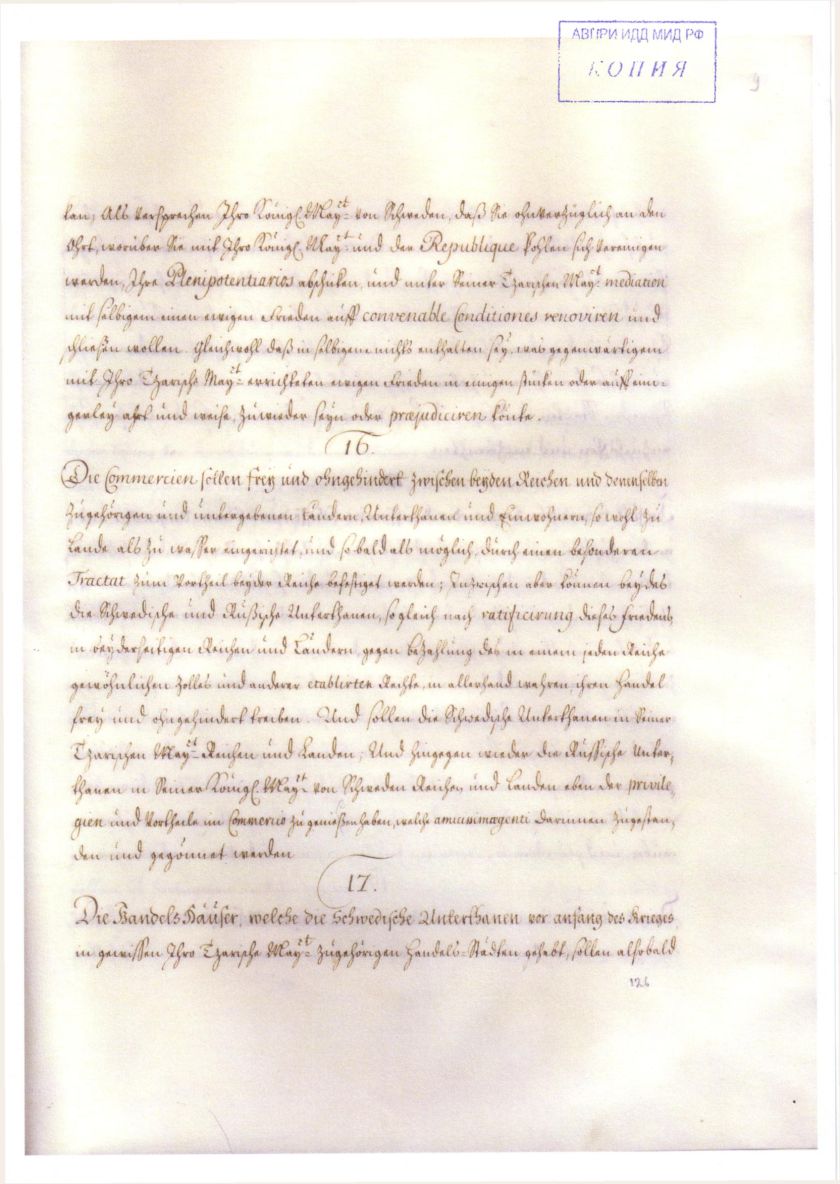 АВПРИ ИДД МИД РФ
КОПИЯ
9
kan, Als versprechen Ihro Königl. Mayt: von Schweden, daß Sie ohnverzüglich an den
Ohrt, worüber Sie mit Ihro Königl. Mayt: und der Republique Pohlen sich vereinigen
werden, Ihre Plenipotentiarios abschicken, und unter Seiner Tzarischen Mayt: mediation
mit selbigem einen ewigen Frieden auff convenable Conditiones renoviren und
schließen wollen. Gleichwohl daß in selbigem nichts enthalten sey, was gegenwärtigem
mit Ihro Tzarische Mayt: errichteten ewigen Frieden in einigen stücken oder auff eini-
gerley ahrt und weise, zuwieder seyn oder præjudiciren könte.
16.
Die Commercien sollen frey und ohngehindert zwischen beyden Reichen und denenselben
zugehörigen und untergebenen Ländern, Unterthanen und Einwohnern, so wohl zu
Lande als zu wasser eingerichtet, und so bald als möglich, durch einen besonderen
Tractat zum Vortheil beyder Reiche befestiget werden; Inzwischen aber können beydes
die Schwedische und Rußische Unterthanen, so gleich nach ratificirung dieses friedens
in beyderseitigen Reichen und Ländern, gegen bezahlung des in einem jeden Reiche
gewöhnlichen zolles und anderer etablirten Rechte, in allerhand wahren, ihren handel
frey und ohngehindert treiben. Und sollen die Schwedische Unterthanen in Seiner
Tzarischen Mayt: Reichen und Landen; Und hingegen wieder die Russische Unter,
thanen in Seiner Königl. Mayt: von Schweden Reichen und Landen eben der privile,
gien und Vortheile im Commercio zu genießen haben, welche amicissimæ genti darinnen zugestan,
den und gegönnet werden
17.
Die Handels Häuser, welche die Schwedische Unterthanen vor anfang des Krieges
in gewissen Ihro Tzarische Mayt: zugehörigen Handels-Städten gehabt, sollen alsobald
126